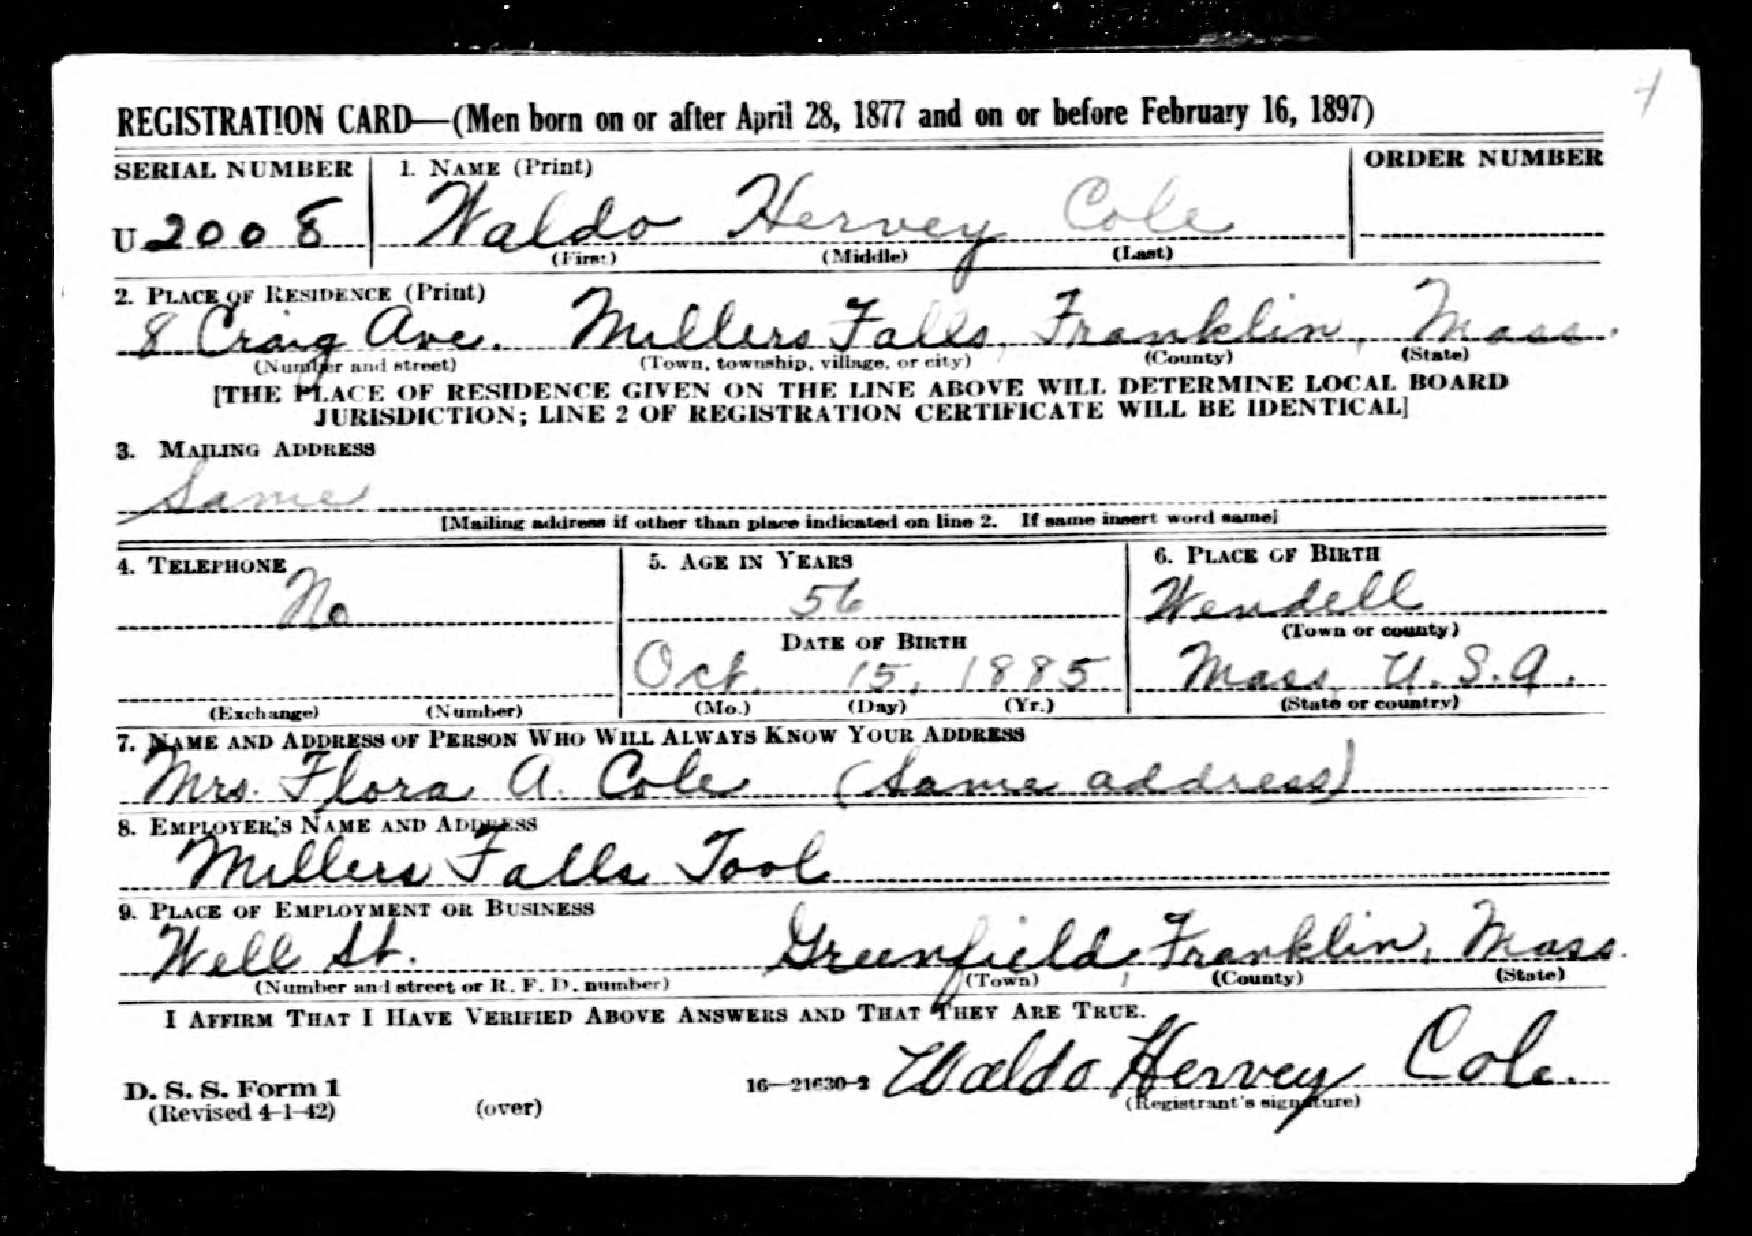 REGISTRATION CARD—(Men born on or after April 28, 1877 and on or before February 16, 1897)
SERIAL NUMBER 1. NAME (Print) ORDER NUMBER
U 2008 Waldo Hervey Cole
(First) (Middle) (Last)
2. PLACE OF RESIDENCE (Print)
8 Craig Ave. Millers Falls, Franklin, Mass.
(Number and street) (Town, township, village, or city) (County) (State)
[THE PLACE OF RESIDENCE GIVEN ON THE LINE ABOVE WILL DETERMINE LOCAL BOARD
JURISDICTION; LINE 2 OF REGISTRATION CERTIFICATE WILL BE IDENTICAL]
3. MAILING ADDRESS
Same
[Mailing address if other than place indicated on line 2. If same insert word same]
4. TELEPHONE 5. AGE IN YEARS 6. PLACE OF BIRTH
No 56 Wendell
DATE OF BIRTH (Town or county)
Oct. 15, 1885 Mass. U.S.A.
(Exchange) (Number) (Mo.) (Day) (Yr.) (State or country)
7. NAME AND ADDRESS OF PERSON WHO WILL ALWAYS KNOW YOUR ADDRESS
Mrs. Flora A. Cole (Same address)
8. EMPLOYER'S NAME AND ADDRESS
Millers Falls Tool
9. PLACE OF EMPLOYMENT OR BUSINESS
Well St. Greenfield, Franklin, Mass.
(Number and street or R. F. D. number) (Town) (County) (State)
I AFFIRM THAT I HAVE VERIFIED ABOVE ANSWERS AND THAT THEY ARE TRUE.
D. S. S. Form 1 16—21630-2 Waldo Hervey Cole.
(Revised 4-1-42) (over) (Registrant's signature)